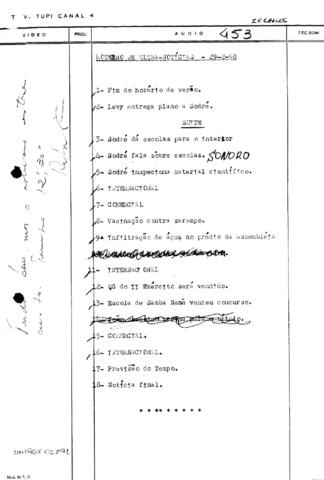 T V. TUPI CANAL 4
VIDEO
PROJ.
AUDIO
453
TEC SOM
ROTEIRO DE ULTRA-NOTÍCIAS - 29-2-68
1- Fim do horário de verão.
2- Levy entrega plano a Sodré.
SUITE
3- Sodré dá escolas para o interior
4- Sodré fala sobre escolas. SONORO
5- Sodré inspeciona material científico.
6- INTERNACIONAL
7- COMERCIAL
8- Vacinação contra sarampo.
9- Infiltração de água no prédio da assembléia
11- INTERNACIONAL
12- QG do II Exército será vendido.
13- Escola de Samba Nenê venceu concurso.
15- COMERCIAL.
16- INTERNACIONAL.
17- Previsão do Tempo.
18- Notícia final.
* * * * * * * *
Mod. 80 T. V.